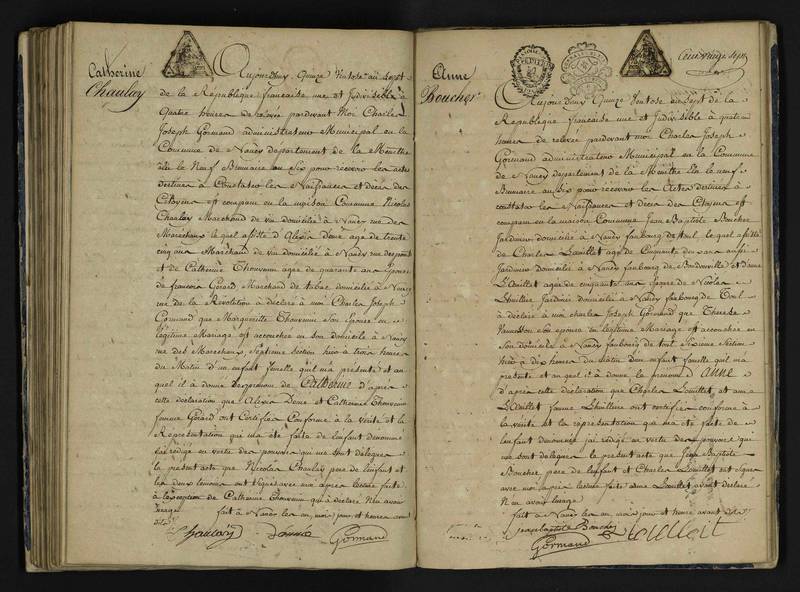 Catherine
Chaulay
Aujourd'huy Quinze Ventose an Sept
de la Republique francaise une et Indivisible à
Quatre heures de relevée pardevant Moi Charles
Joseph Gormand administrateur Municipal en la
Commune de Nancy departement de la Meurthe
élu le Neuf Brumaire an Six pour recevoir les actes
destinés à Constater les Naissances et décès des
Citoyens est comparu en la maison Commune Nicolas
Chaulay Marchand de vin domicilié à Nancy rue des
Maréchaux lequel assisté d'Alexis Dome agé de trente
cinq ans Marchand de vin domicilié à Nancy rue
et de Catherine Thouvenin agée de quarante ans épouse
de francois Gérard Marchand de tabac domicilié à Nancy
rue de la Révolution à déclaré à moi Charles Joseph
Gormand que Marguerite Thouvenin Son Epouse en
légitime Mariage est accouchée en son domicile à Nancy
rue des Maréchaux Septieme Section hier à trois heures
du Matin d'un enfant femelle qu'il m'a présenté et au
quel il à donné le prenom de Catherine d'après
cette déclaration que Alexis Dome et Catherine Thouvenin
femme Gérard ont Certifier Conforme à la vérité et la
Représentation qui m'a été faite de l'enfant denommé
j'ai rédigé en vertu des pouvoirs qui me sont délégués
le présent acte que Nicolas Chaulay pere de l'enfant et
les deux témoins ont Signé avec moi après lecture faite
à l'exception de Catherine Thouvenin qui à déclaré N'en avoir
usage
fait à Nancy les an, mois, jour, et heures avant
dits
Chaulay
Gormand
Anne
Boucher
Aujourd'huy Quinze Ventose an Sept de la
Republique francaise une et Indivisible à quatre
heures de relevée pardevant moi Charles Joseph
Gormand administrateur Municipal en la Commune
de Nancy departement de la Meurthe Elu le neuf
Brumaire an Six pour recevoir les Actes destinés à
constater les Naissances et décès des Citoyens est
comparu en la maison Commune Jean Baptiste Boucher
Jardinier domicilié à Nancy faubourg de Toul lequel assisté
de Charles Louillet agé de Cinquante deux ans aussi
Jardinier domicilié à Nancy faubourg de Boudonville et d'anne
agée de cinquante ans épouse de Nicolas
Lhuillier Jardinier domicilié à Nancy faubourg de Toul
à déclaré à moi Charles Joseph Gormand que Therese
son epouse en légitime Mariage est accouchée en
Son domicile à Nancy faubourg de toul Sixieme Section
hier à dix heures du matin d'un enfant femelle qu'il m'a
présenté et au quel il à donné le prenom d'ANNE
d'après cette déclaration que Charles Louillet, et anne
femme Lhuillier ont certifier conforme à
la vérité et la représentation qui m'a été faite de
l'enfant denommé j'ai rédigé en vertu des pouvoirs qui
me sont délégués le présent acte que Jean Baptiste
Boucher pere de l'enfant et Charles Louillet ont signé
avec moi après lecture faite anne ayant déclaré
N'en avoir usage
fait à Nancy les an, mois, jour et heures avant dits
Jean baptiste Boucher
Gormand